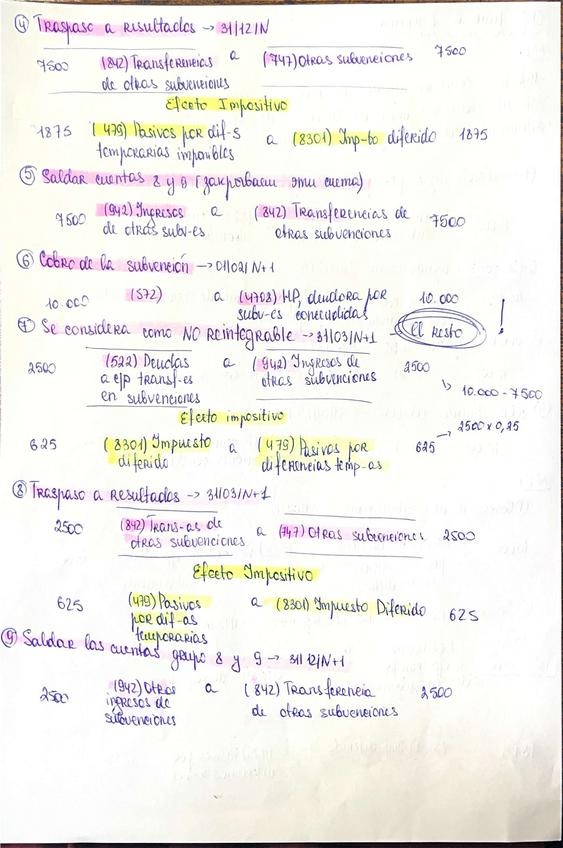 ④ Traspaso a resultados → 31/12/N
7500 (842) Transferencias a (747) Otras subvenciones 7500
de otras subvenciones
Efecto Impositivo
1875 (479) Pasivos por dif-s a (8301) Imp-to diferido 1875
temporarias imponibles
⑤ Saldar cuentas 8 y 9 (закрываем эти счета)
7500 (942) Ingresos a (842) Transferencias de 7500
de otras subv-es otras subvenciones
⑥ Cobro de la subvención → 01/02/N+1
10.000 (572) a (4708) HP, deudora por 10.000
subv-es concedidas
⑦ Se considera como NO Reintegrable → 31/03/N+1 El resto !
2500 (522) Deudas a (942) Ingresos de 2500
a c/p transf-es otras subvenciones ↳ 10.000 - 7500
en subvenciones
Efecto impositivo 2500 x 0,25
625 (8301) Impuesto a (479) Pasivos por 625 →
diferido diferencias temp-as
⑧ Traspaso a Resultados → 31/03/N+1
2500 (842) Trans-as de a (747) Otras subvenciones 2500
otras subvenciones
Efecto Impositivo
625 (479) Pasivos a (8301) Impuesto Diferido 625
por dif-as
temporarias
⑨ Saldar las cuentas grupo 8 y 9 → 31/12/N+1
2500 (942) Otros a (842) Transferencia 2500
ingresos de de otras subvenciones
subvenciones